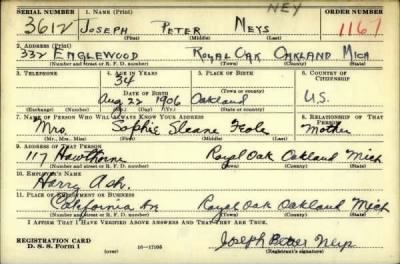 NEY
SERIAL NUMBER 1. NAME (Print) ORDER NUMBER
3612 JOSEPH PETER NEYS 1167
(First) (Middle) (Last)
2. ADDRESS (Print)
332 ENGLEWOOD ROYAL OAK OAKLAND MICH
(Number and street or R. F. D. number) (Town) (County) (State)
3. TELEPHONE 4. AGE IN YEARS 5. PLACE OF BIRTH 6. COUNTRY OF CITIZENSHIP
34
(Town or county)
DATE OF BIRTH
Aug 22 1906 Oakland U.S.
(Exchange) (Number) (Mo.) (Day) (Yr.) (State or country)
7. NAME OF PERSON WHO WILL ALWAYS KNOW YOUR ADDRESS 8. RELATIONSHIP OF THAT PERSON
Mrs. Sophie Sloane Mother
(Mr., Mrs., Miss) (First) (Middle) (Last)
9. ADDRESS OF THAT PERSON
117 Hawthorne Royal Oak Oakland Mich
(Number and street or R. F. D. number) (Town) (County) (State)
10. EMPLOYER'S NAME
Harry Ash.
11. PLACE OF EMPLOYMENT OR BUSINESS
California Royal Oak Oakland Mich
(Number and street or R. F. D. number) (Town) (County) (State)
I AFFIRM THAT I HAVE VERIFIED ABOVE ANSWERS AND THAT THEY ARE TRUE.
REGISTRATION CARD
D. S. S. Form 1 (over) 16—17105 Joseph Peter Neys
(Registrant's signature)